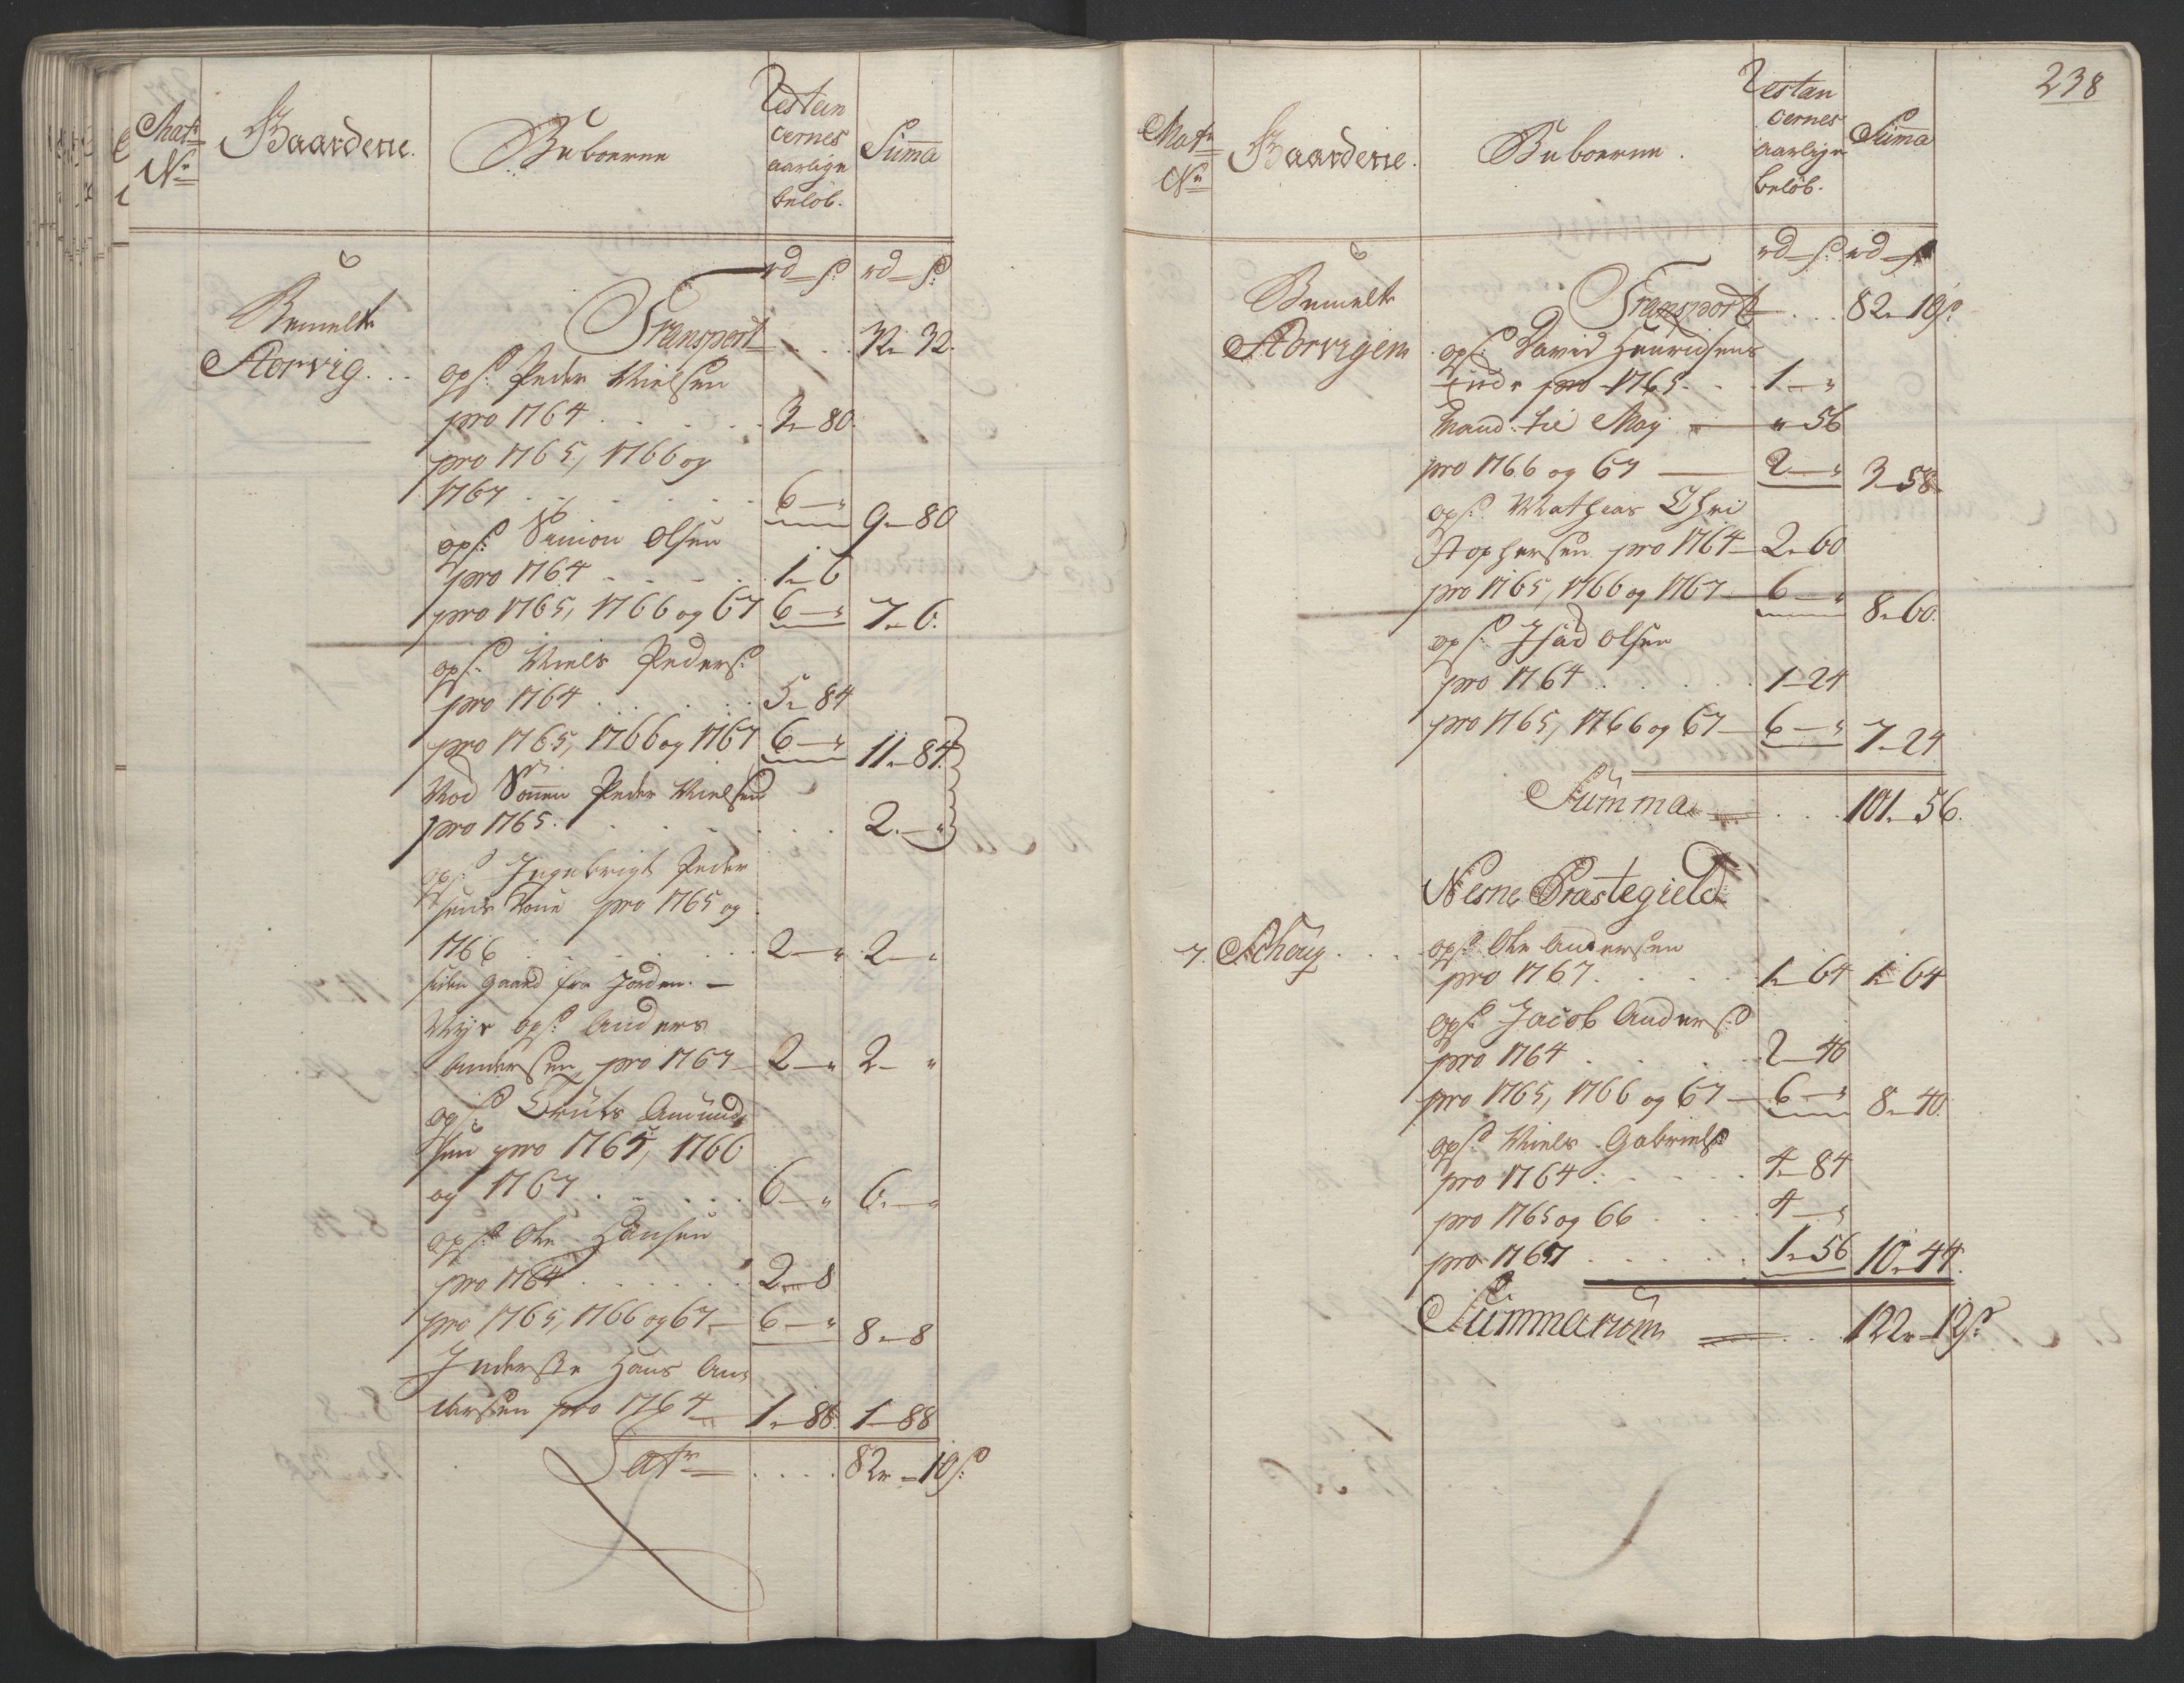 Mat:
No
Gaardene.
Beboerne
Restan
cernes
aarlige
beløb.
Suma
rd s: rd s:
Bemelte
Storvig...
Transport . . . 32. 32.
opss: Peder Nielsen
pro 1764 . . . . . 3 80.
pro 1765, 1766 og
1767 . . . . . . 6 " 9 80
opss: Simon Olsen
pro 1764 . . . . . 1 6
pro 1765, 1766 og 67 6 " 7 6.
opss: Niels Peders:
pro 1764 . . . . . 5 84
pro 1765, 1766 og 1767 6 " 11 84.
Nod Sønnen Peder Nielsen
pro 1765. . . . . . . 2. "
opss: Ingebrigt Peder
sens Kone pro 1765 og
1766 . . . . . . 2 " 2 "
uden gaard fra Jorden.
Nye opss: Anders
Andersen, pro 1767 2 " 2 "
opss: Truls Amund
sen pro 1765, 1766
og 1767 . . . . . 6 " 6. "
opss: Ole Hansen
pro 1764 . . . . . . 2 8
pro 1765, 1766 og 67 6 " 8 8
Inderste Hans An
dersen pro 1764 1 88. 1 88
Late . . . . 82 10 s:
238
Mat:
No
Gaardene.
Beboerne.
Restan
cernes
aarlige
beløb.
Suma
rd s: rd s:
Bemelte
Storvigen
Transport . . . 82 10 s:
opss: David Henrichsens
Enke pro 1765. . . 1 "
Mand til May " 56
pro 1766 og 67 2 " 3 58
opss: Mathias Chri
stophersen pro 1764 2 60
pro 1765, 1766 og 1767 6 " 8 60.
opss: Isach Olsen
pro 1764 . . . . . 1 24
pro 1765, 1766 og 67 6 " 7 24
Summa . . . 101 56.
Nesne Præstegield
7. Schoug . . . opss: Ole Andersen
pro 1767 . . . . . 1 64 1 64
opss: Jacob Anders:
pro 1764 . . . . . 2 40
pro 1765, 1766 og 67 6 " 8 40.
opss: Niels Gabriels:
pro 1764 . . . . . 4 84
pro 1765 og 66 . . . 4 "
pro 1767 . . . . . 1 56 10 44.
Summarum . . 122 12 s: